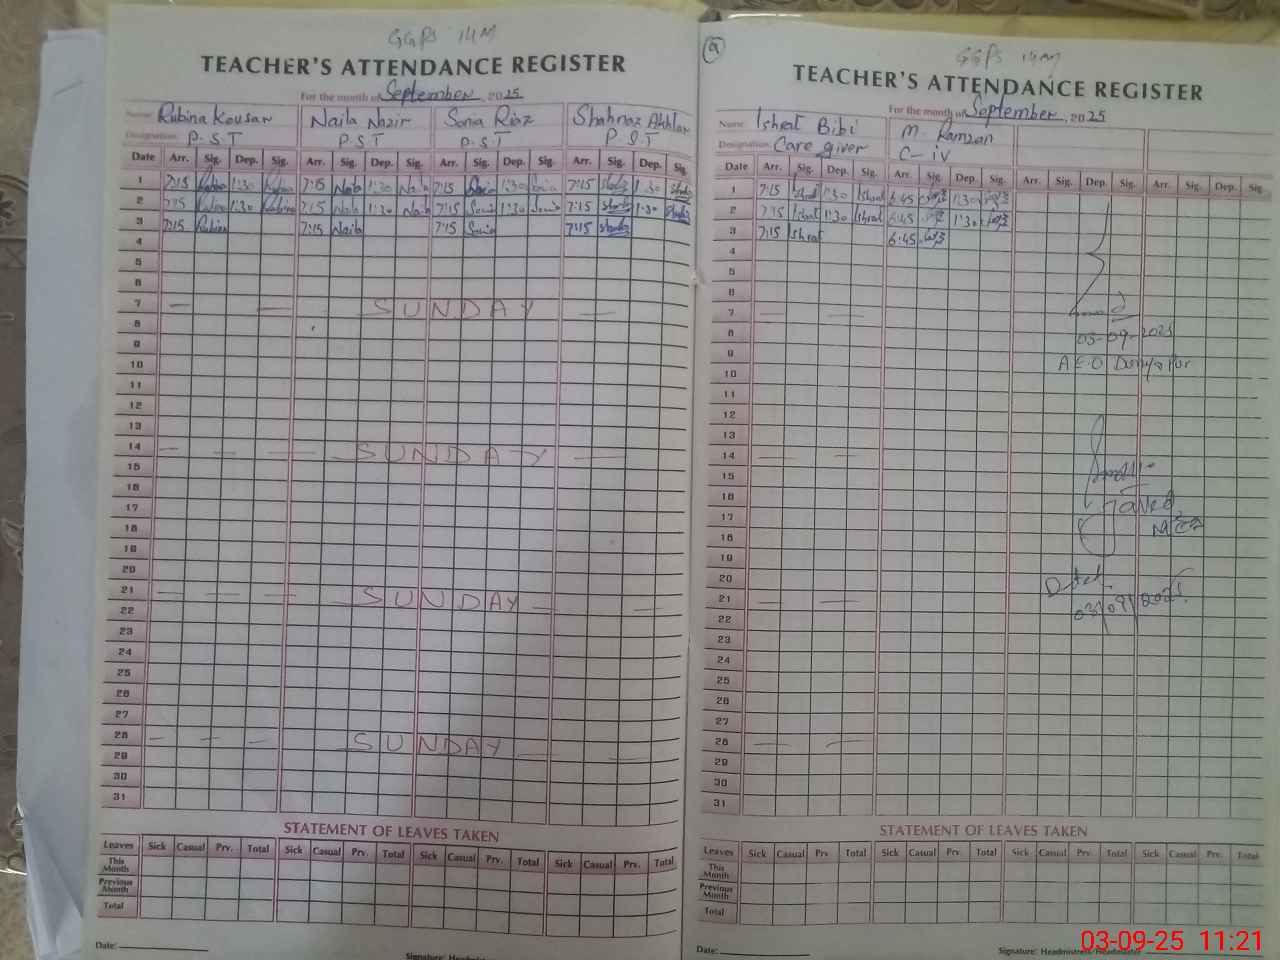 GGPS 14M
TEACHER'S ATTENDANCE REGISTER
For the month of September, 2025
Name Rubina Kousar Naila Nazir Sonia Riaz Shahnaz Akhtar
Designation P.S.T P.S.T P.S.T P.S.T
Date Arr. Sig. Dep. Sig. Arr. Sig. Dep. Sig. Arr. Sig. Dep. Sig. Arr. Sig. Dep. Sig.
1 7:15 Rubina 1:30 Rubina 7:15 Naila 1:30 Naila 7:15 Sonia 1:30 Sonia 7:15 1:30
2 7:15 Rubina 1:30 Rubina 7:15 Naila 1:30 Naila 7:15 Sonia 1:30 Sonia 7:15 1:30
3 7:15 Rubina 7:15 Naila 7:15 Sonia 7:15
4
5
6
7 SUNDAY
8
9
10
11
12
13
14 SUNDAY
15
16
17
18
19
20
21 SUNDAY
22
23
24
25
26
27
28 SUNDAY
29
30
31
STATEMENT OF LEAVES TAKEN
Leaves Sick Casual Prv. Total Sick Casual Prv. Total Sick Casual Prv. Total Sick Casual Prv. Total
This Month
Previous Month
Total
Date:
Signature: Headmistress/Headmaster
9
GGPS 14M
TEACHER'S ATTENDANCE REGISTER
For the month of September, 2025
Name Ishrat Bibi M. Ramzan
Designation Care giver C-iv
Date Arr. Sig. Dep. Sig. Arr. Sig. Dep. Sig. Arr. Sig. Dep. Sig. Arr. Sig. Dep. Sig.
1 7:15 Ishrat 1:30 Ishrat 6:45 1:30
2 7:15 Ishrat 1:30 Ishrat 6:45 1:30
3 7:15 Ishrat 6:45
4
5
6
7
8 03-09-2025
9 AEO Dunyapur
10
11
12
13
14
15
16
17 Javed
18
19
20 Dated
21 03/09/2025
22
23
24
25
26
27
28
29
30
31
STATEMENT OF LEAVES TAKEN
Leaves Sick Casual Prv Total Sick Casual Prv. Total Sick Casual Prv. Total Sick Casual Prv. Total
This Month
Previous Month
Total
Date:
Signature: Headmistress/Headmaster
03-09-25 11:21